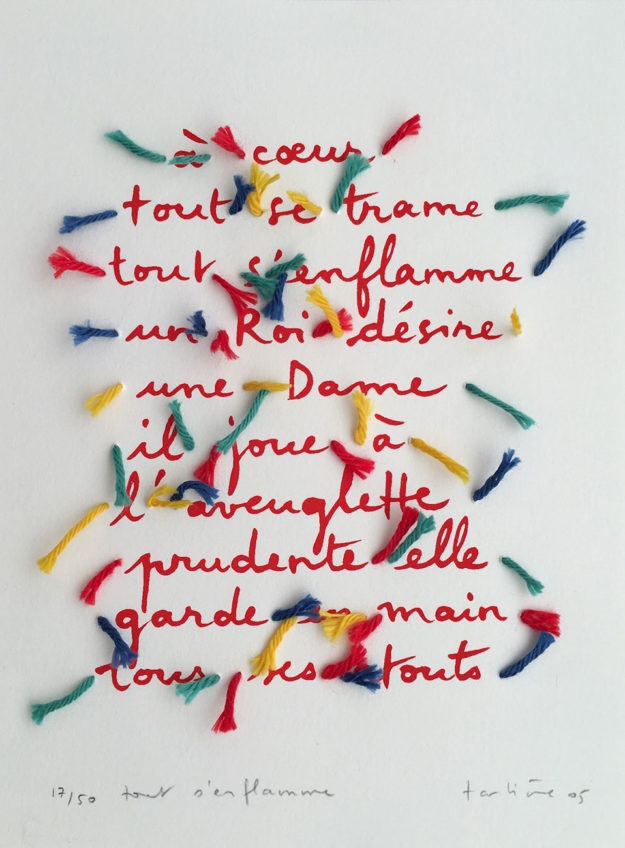 à cœur
tout se trame
tout s'enflamme
un Roi désire
une Dame
il joue à
l'aveuglette
prudente elle
garde en main
tous ses touts
17/50 tout s'enflamme tarlime 05